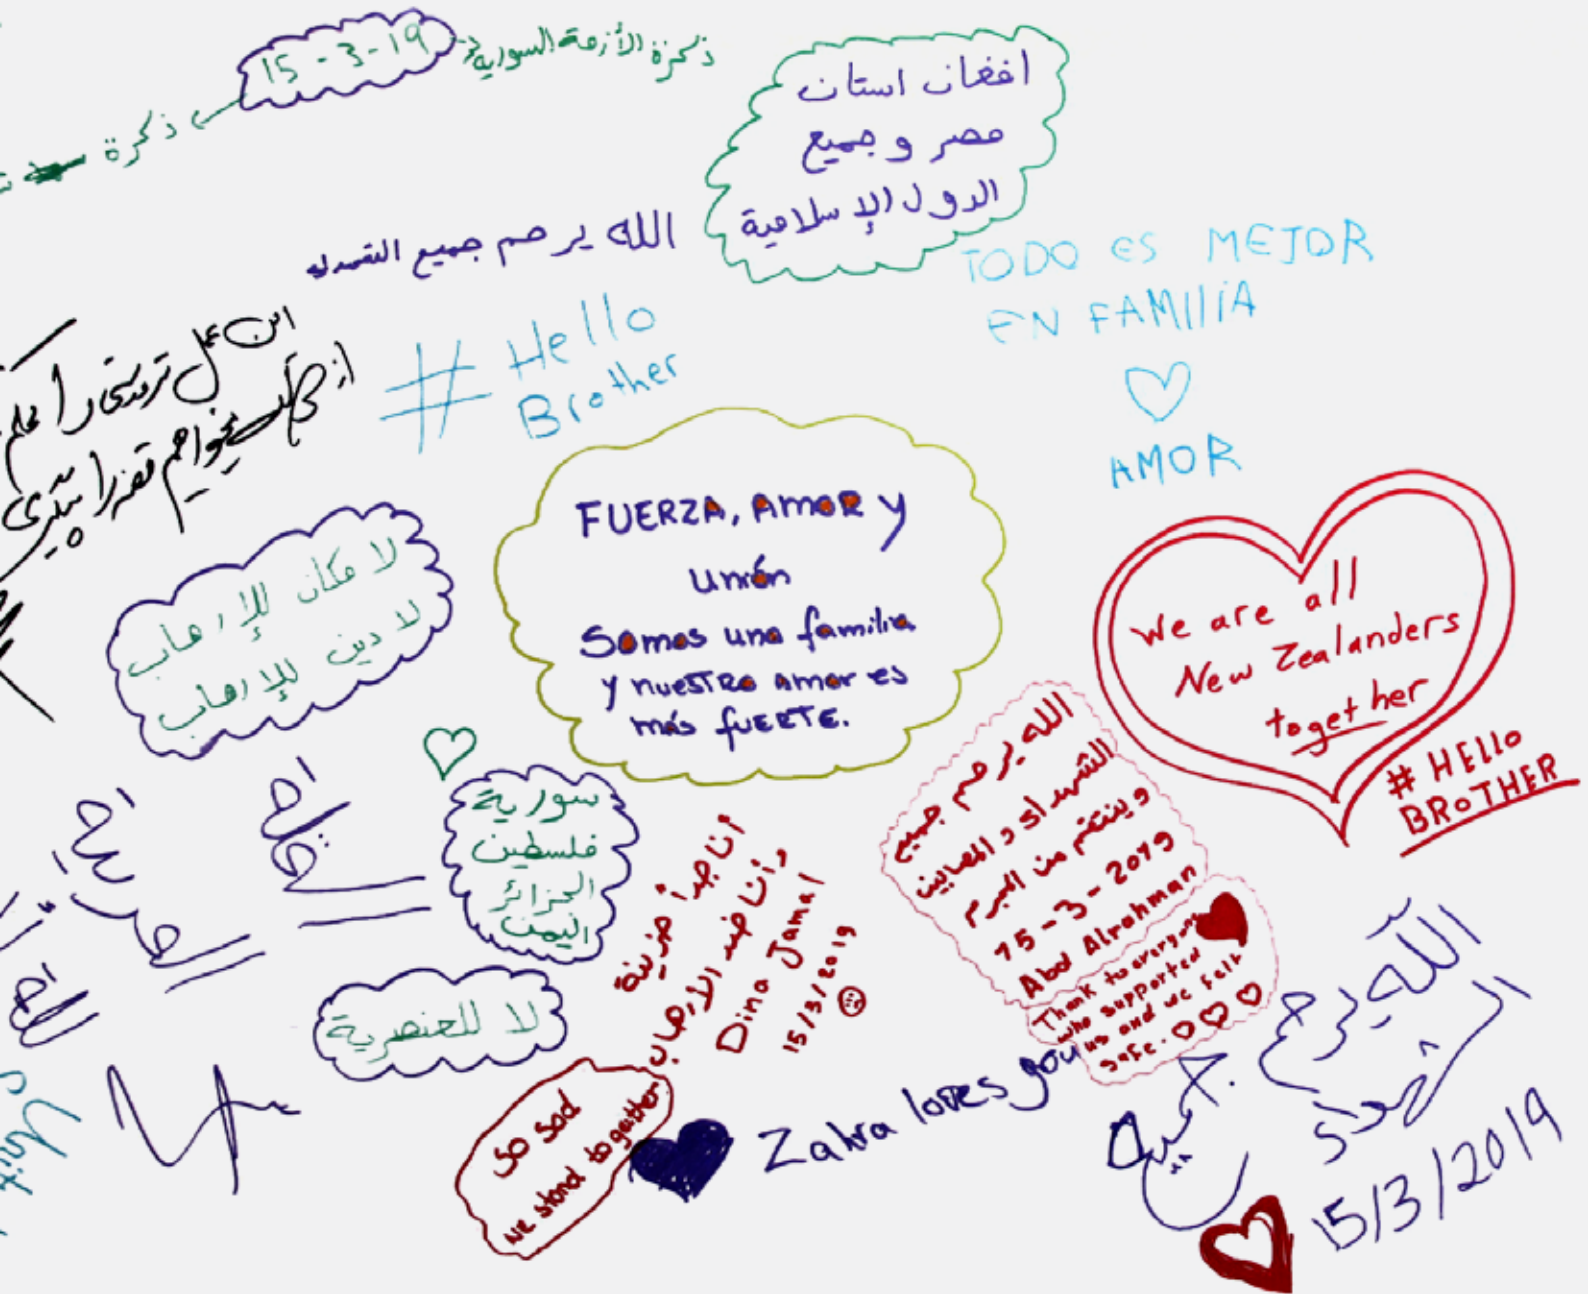 15-3-19
ذكرة الأزمة السورية
ذكرة
افغان استان
مصر و جميع
الدول الإسلامية
الله يرحم جميع
TODO es MEJOR
EN FAMIlIA
AMOR
# Hello
Brother
این عمل را
از
FUERZA, AmoR y
unión
Somos una familia
y nuesTRo amor es
más fuERTE.
We are all
New Zealanders
together
# HEllo
BRoTHER
لا مكان للإرهاب
لا دين للإرهاب
سورية
فلسطين
الجزائر
اليمن
لا للعنصرية
أنا جداً حزينة
وأنا ضد الأرهاب
Dina Jamal
15/3/2019
الله يرحم جميع
الشهداء و المصابين
وينتقم من المجرم
15-3-2019
Abd Alrahman
Thank to everyone
who supported
us and we felt
safe.
So sad
we stand togather
Zahra loves you
الله يرحم
جميع
15/3/2019